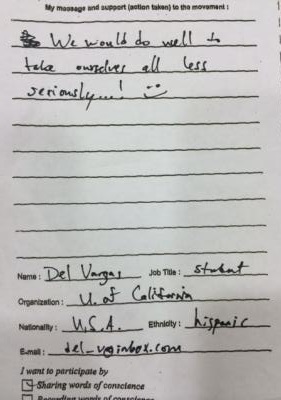 My message and support (action taken) to the movement :
We would do well to
take ourselves all less
seriously...! :)
Name : Del Vargas Job Title : student
Organization : U. of California
Nationality : U.S.A. Ethnicity : hispanic
E-mail : del_v@inbox.com
I want to participate by
Sharing words of conscience
Recording words of conscience